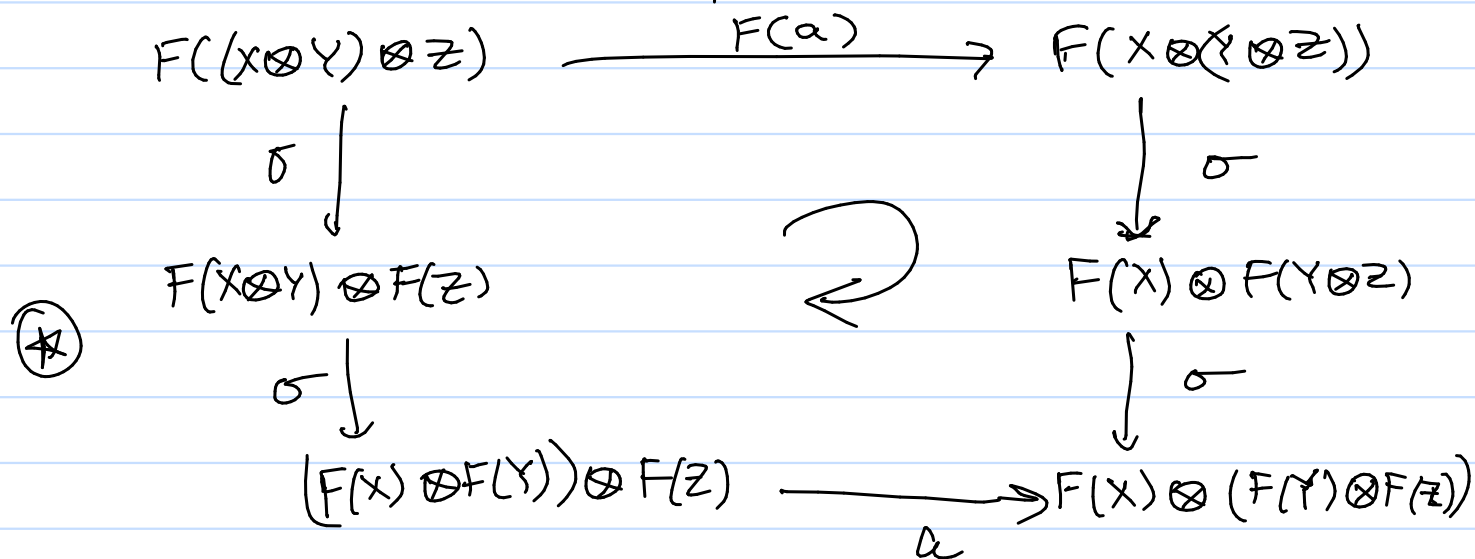 F((X⊗Y)⊗Z) F(a) F(X⊗(Y⊗Z))
σ σ
F(X⊗Y)⊗F(Z) F(X)⊗F(Y⊗Z)
σ σ
(F(X)⊗F(Y))⊗F(Z) a F(X)⊗(F(Y)⊗F(Z))